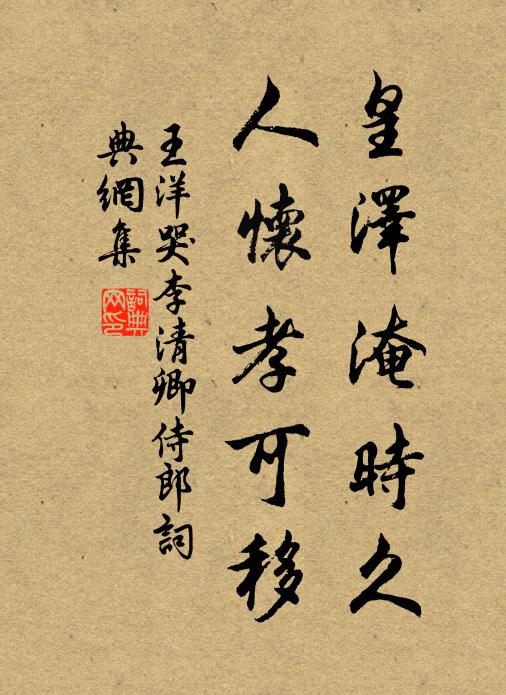 皇澤淹時久
人懷孝可移
王洋哭李清卿侍郎詞
典網集
詞典網印